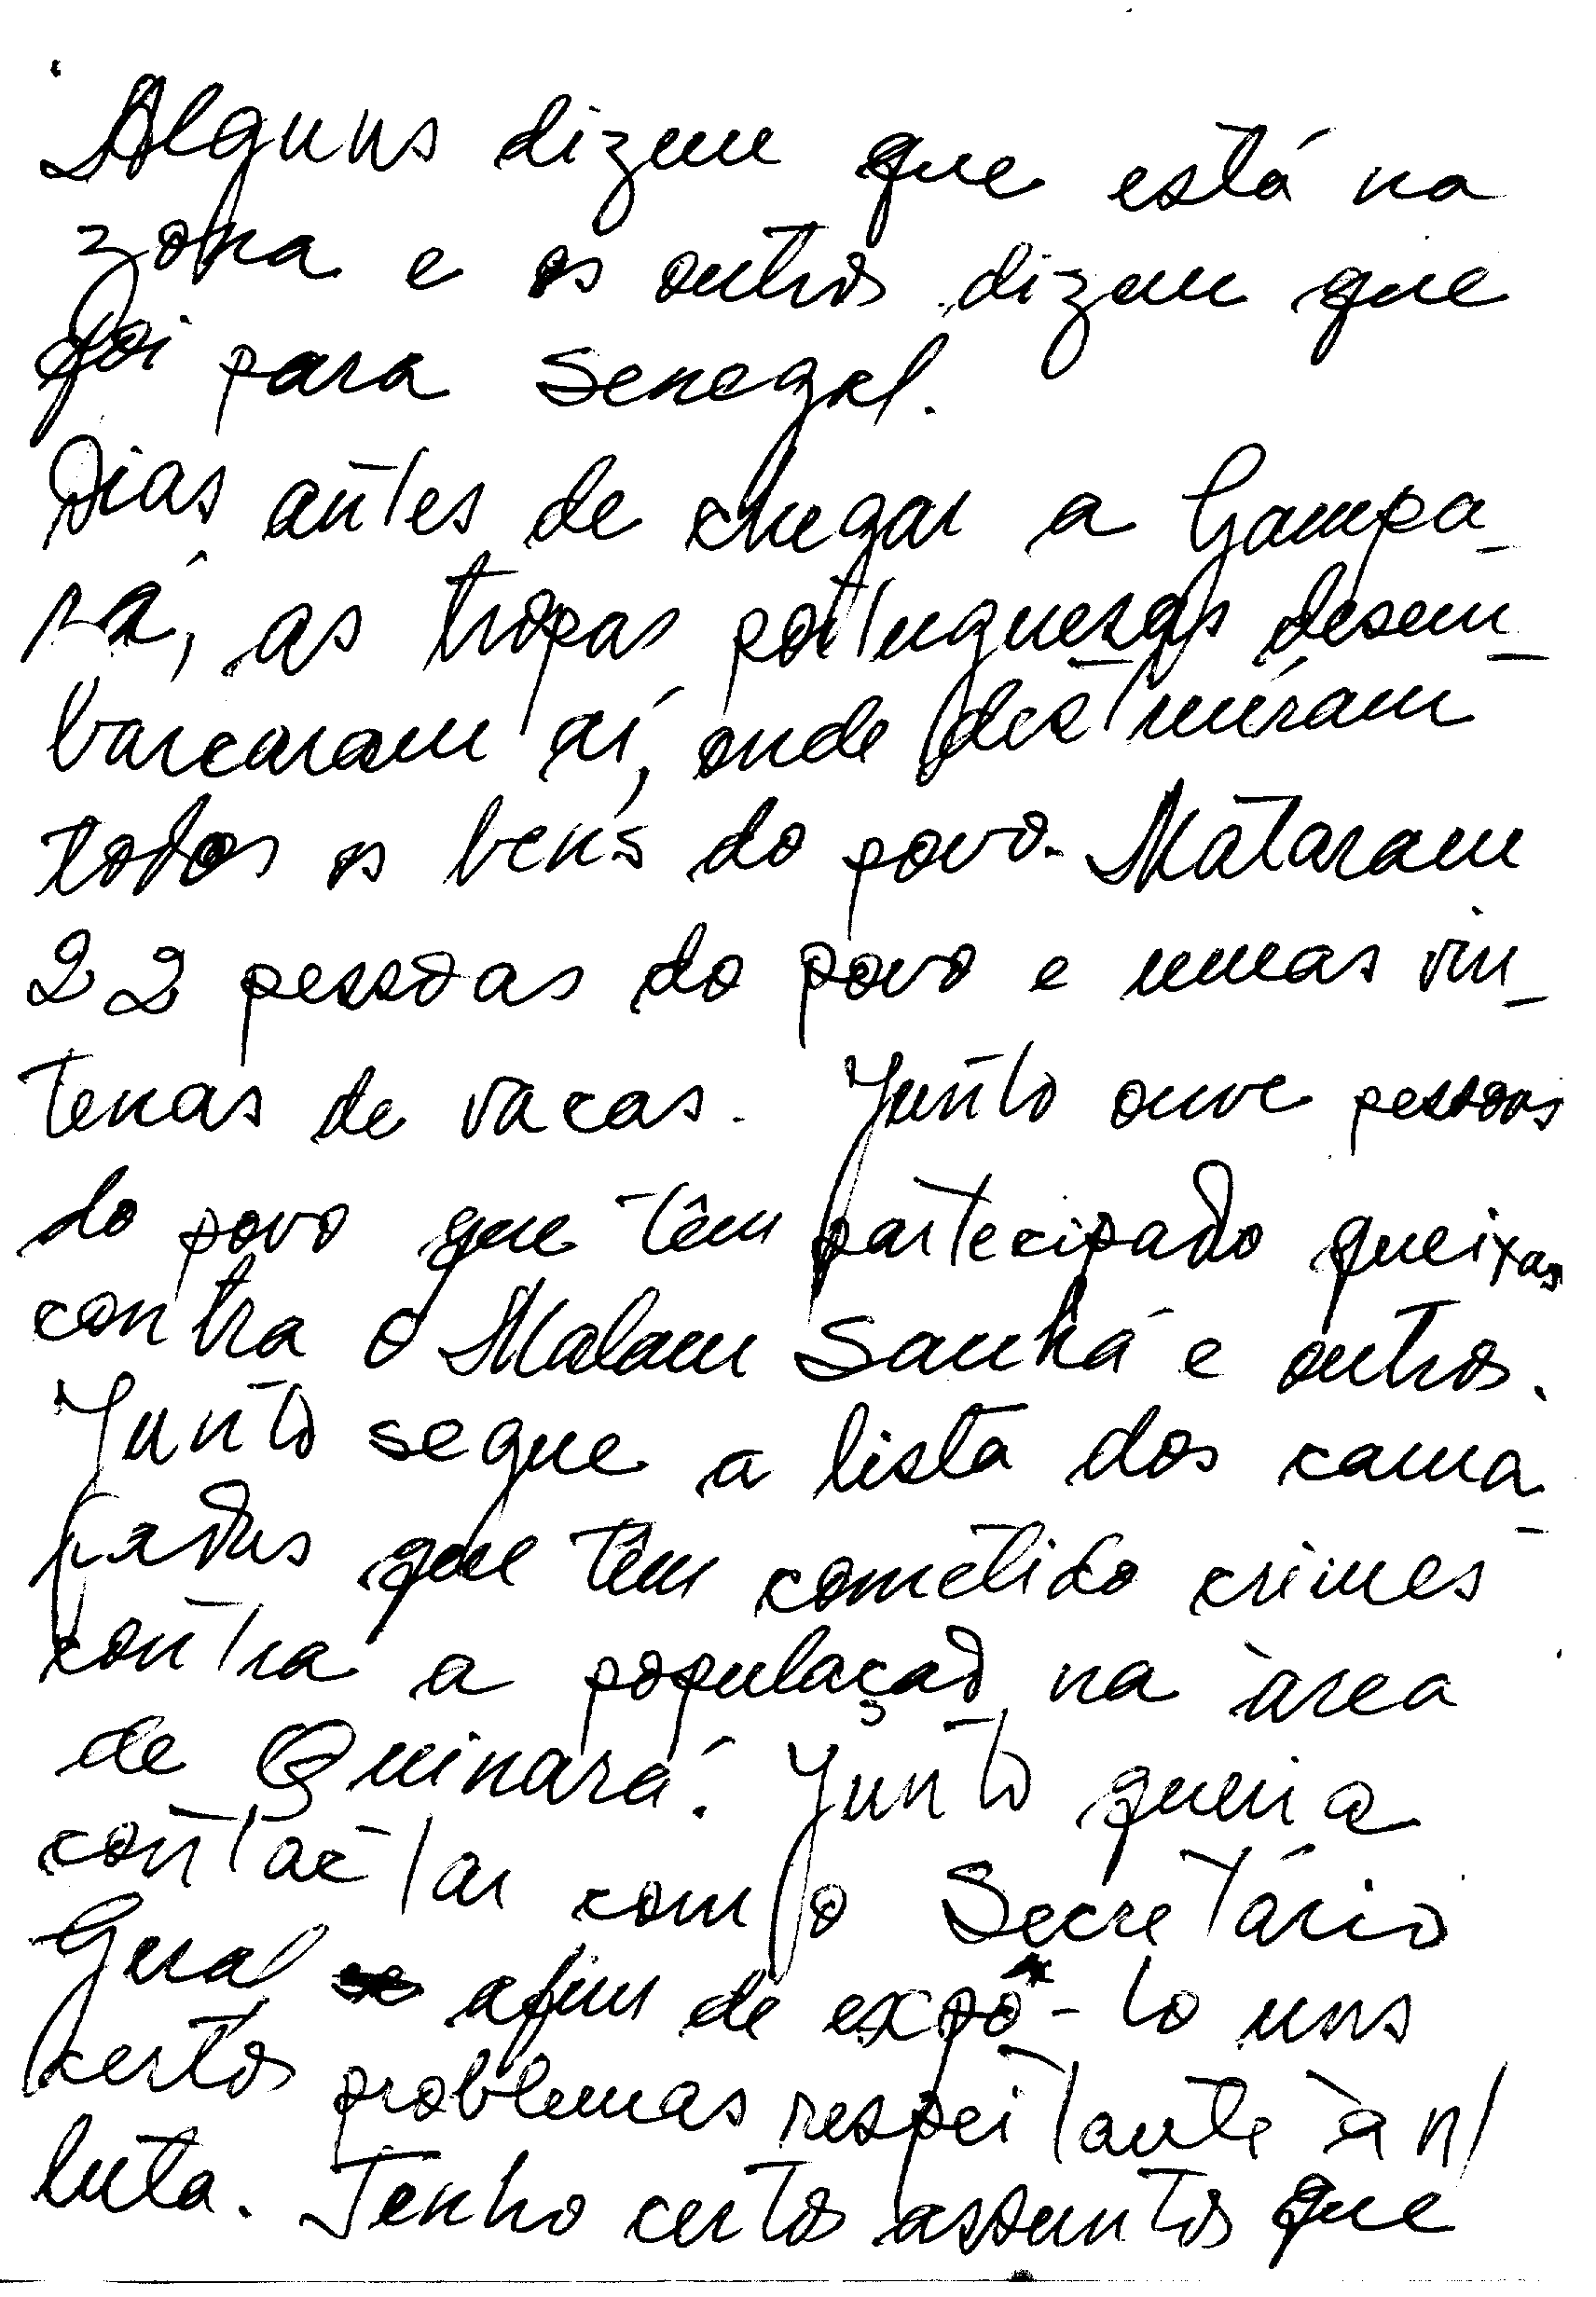 Alguns dizem que está na
zona e os outros dizem que
foi para Senegal.
Dias antes de chegar a Gampa-
rá, as tropas portuguesas desem-
barcaram aí, onde destruíram
todos os bens do povo. Mataram
22 pessoas do povo e umas vin-
tenas de vacas. Junto ouve pessoas
do povo que têm partecipado queixas
contra o Malam Sanhá e outros.
Junto segue a lista dos cama-
radas que têm cometido crimes
contra a população na àrea
de Quinará. Junto queria
contactar com o Secretário
Geral afim de expô-lo uns
certos problemas respeitante à n/
luta. Tenho certos assuntos que